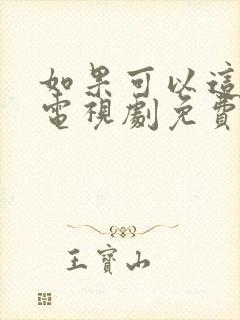 如果可以這
電視劇免費
王寶山